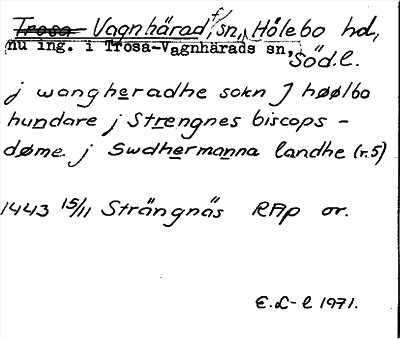 Trosa-Vagnhärad, f sn, Hölebo hd,
nu ing. i Trosa-Vagnhärads sn,
Söd.l.
j wangheradhe sokn J høølbo
hundare j Strengnes biscops-
døme j Swdhermanna landhe (r.5)
1443 15/11 Strängnäs RAp or.
E.L-l 1971.